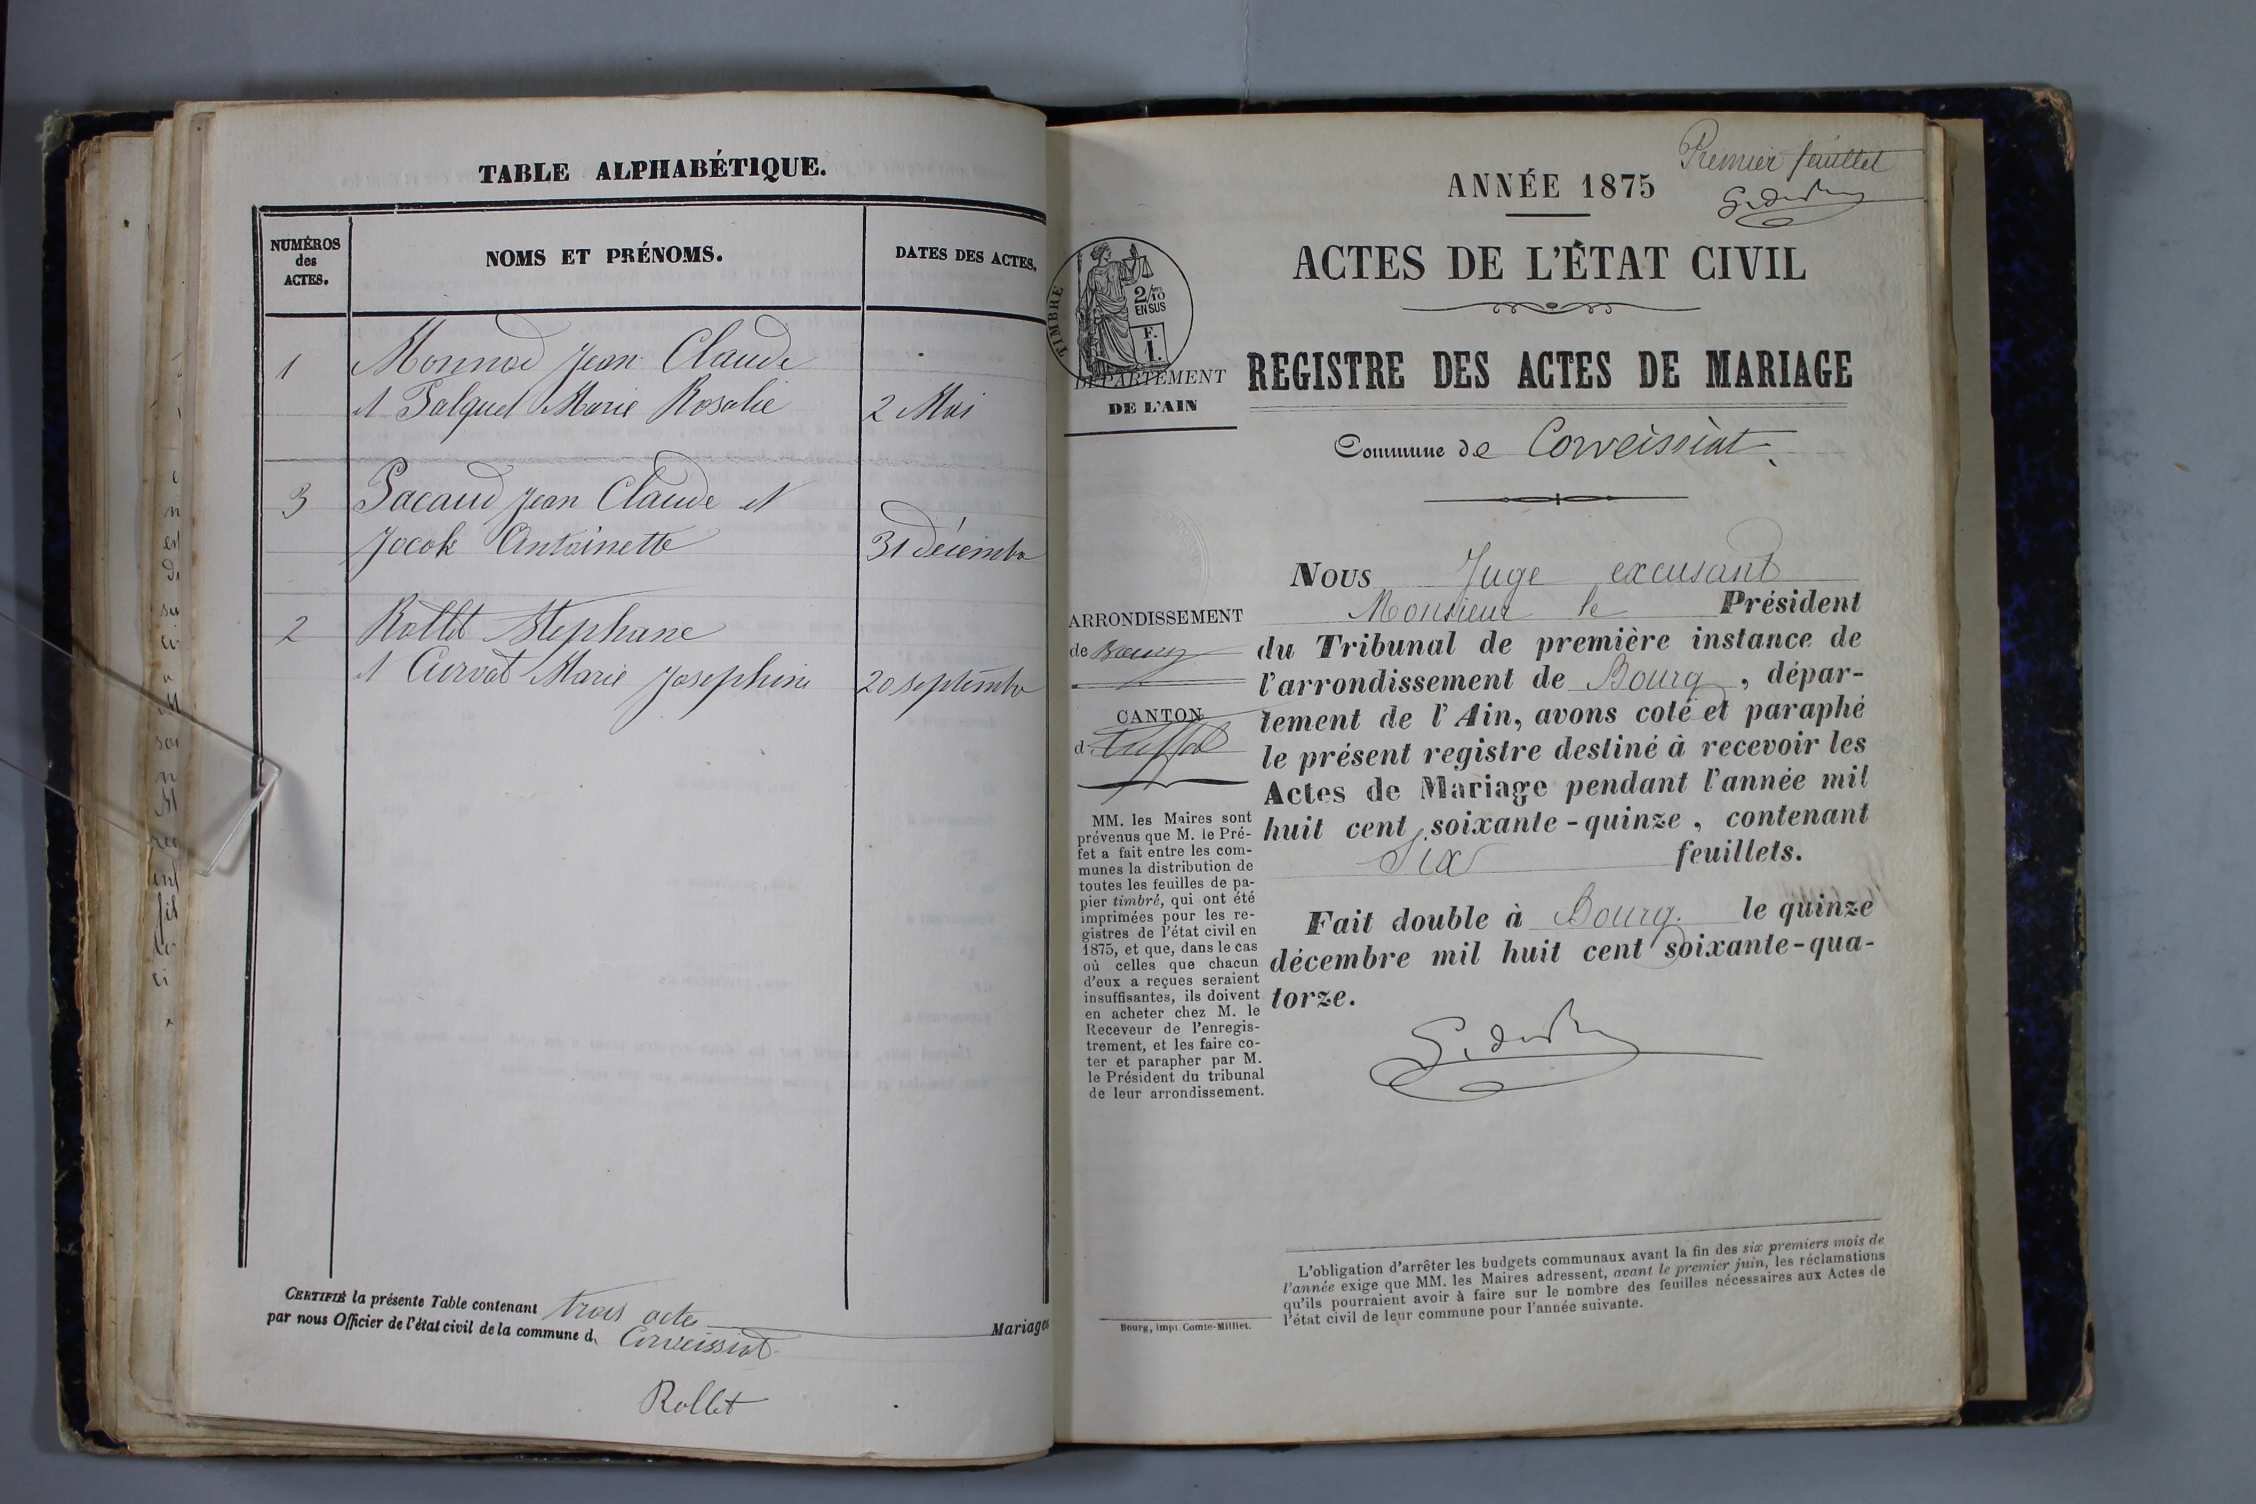 TABLE ALPHABÉTIQUE.
NUMÉROS
des
ACTES.
NOMS ET PRÉNOMS.
DATES DES ACTES.
1 Monnod Jean Claude
et Palquet Marie Rosalie 2 Mai
3 Pacaud Jean Claude et
Antoinette 31 décembre
2 Rollet Stephane
et Curvat Marie Josephine 20 septembre
CERTIFIÉ la présente Table contenant trois actes Mariages
par nous Officier de l'état civil de la commune d Corveissiat
Rollet
Premier feuillet
ANNÉE 1875
ACTES DE L'ÉTAT CIVIL
TIMBRE
2/10
EN SUS
F.
1.
DÉPARTEMENT
DE L'AIN
REGISTRE DES ACTES DE MARIAGE
Commune de Corveissiat.
ARRONDISSEMENT
de Bourg
CANTON
d
MM. les Maires sont
prévenus que M. le Pré-
fet a fait entre les com-
munes la distribution de
toutes les feuilles de pa-
pier timbré, qui ont été
imprimées pour les re-
gistres de l'état civil en
1875, et que, dans le cas
où celles que chacun
d'eux a reçues seraient
insuffisantes, ils doivent
en acheter chez M. le
Receveur de l'enregis-
trement, et les faire co-
ter et parapher par M.
le Président du tribunal
de leur arrondissement.
Bourg, impr. Comte-Milliet.
Nous Juge excusant
Monsieur le Président
du Tribunal de première instance de
l'arrondissement de Bourg, dépar-
tement de l'Ain, avons coté et paraphé
le présent registre destiné à recevoir les
Actes de Mariage pendant l'année mil
huit cent soixante-quinze, contenant
Six feuillets.
Fait double à Bourg. le quinze
décembre mil huit cent soixante-qua-
torze.
L'obligation d'arrêter les budgets communaux avant la fin des six premiers mois de
l'année exige que MM. les Maires adressent, avant le premier juin, les réclamations
qu'ils pourraient avoir à faire sur le nombre des feuilles nécessaires aux Actes de
l'état civil de leur commune pour l'année suivante.